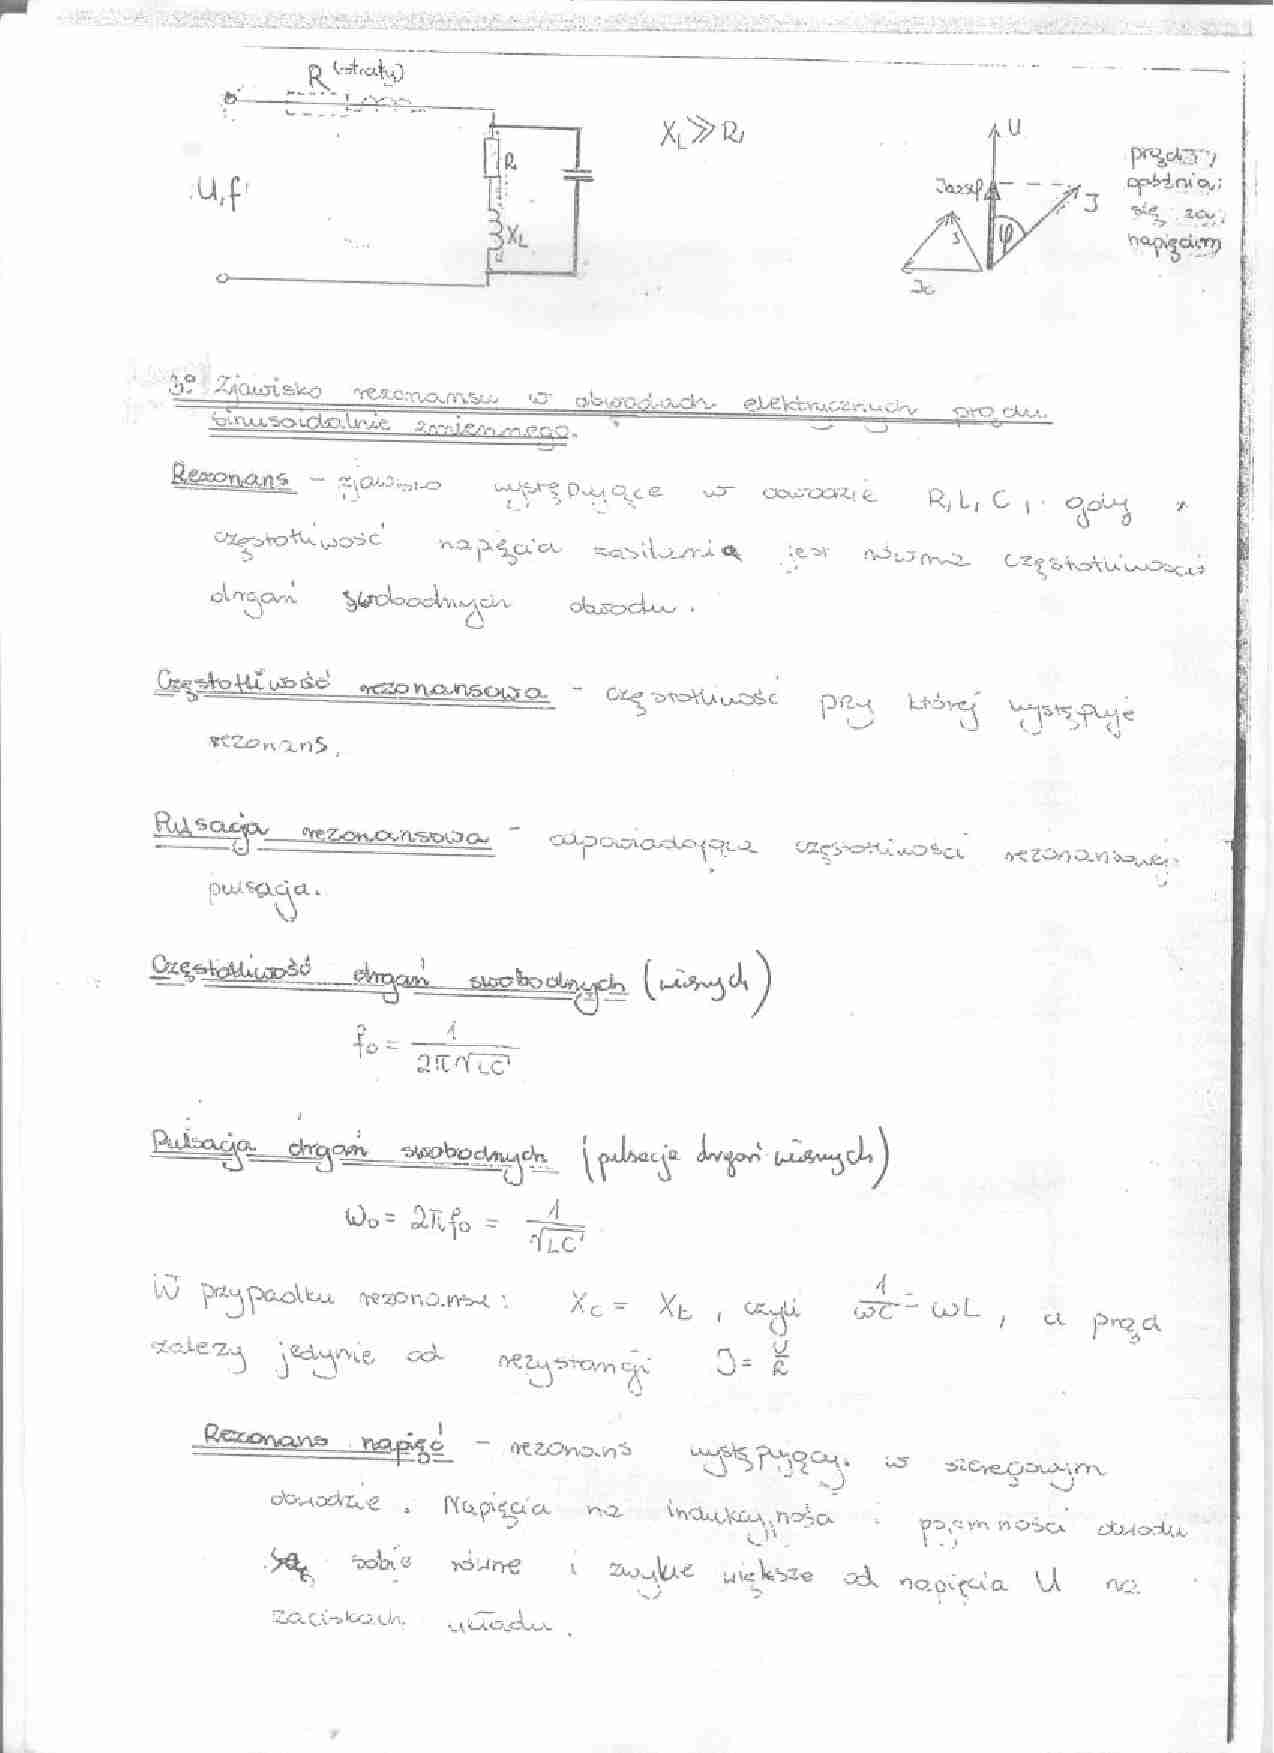 R (straty)
U, f
R
X_L
X_L >> R
U
J
φ
prąd J
opóźnia
się za
napięciem
3° Zjawisko rezonansu w obwodach elektrycznych prądu
sinusoidalnie zmiennego.
Rezonans - zjawisko występujące w obwodzie R, L, C, gdy
częstotliwość napięcia zasilania jest równa częstotliwości
drgań swobodnych obwodu.
Częstotliwość rezonansowa - częstotliwość przy której występuje
rezonans.
Pulsacja rezonansowa - odpowiadająca częstotliwości rezonansowej
pulsacja.
Częstotliwość drgań swobodnych (własnych)
f₀ = 1 / 2π√LC
Pulsacja drgań swobodnych (pulsacja drgań własnych)
ω₀ = 2πf₀ = 1 / √LC
W przypadku rezonansu: X_C = X_L, czyli 1/ωC = ωL, a prąd
zależy jedynie od rezystancji J = U/R
Rezonans napięć - rezonans występujący w szeregowym
obwodzie. Napięcia na indukcyjności i pojemności obwodu
są sobie równe i zwykle większe od napięcia U na
zaciskach układu.